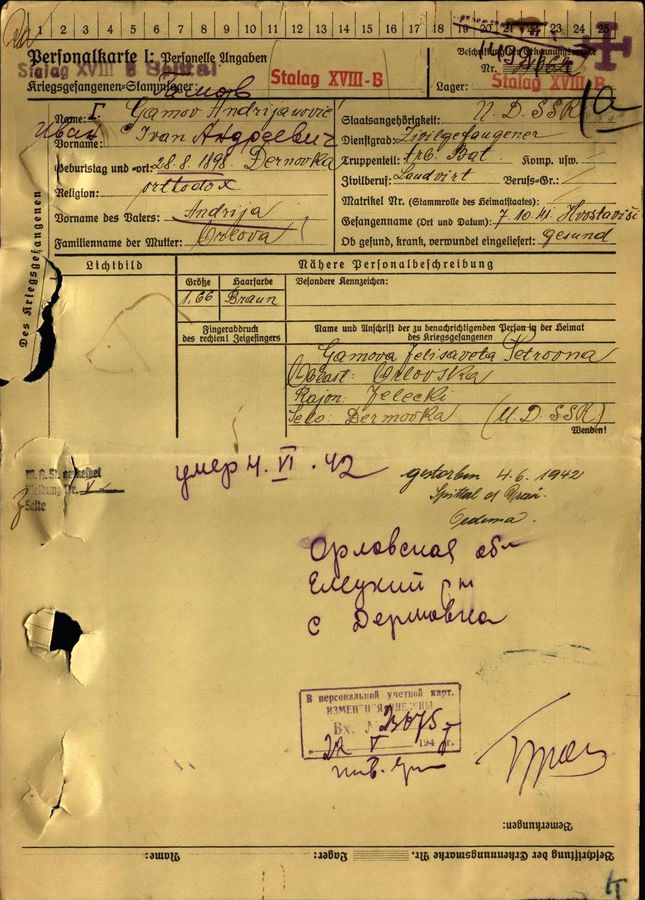 1 2 3 4 5 6 7 8 9 10 11 12 13 14 15 16 17 18 19 20 21 22 23 24 25
Personalkarte I: Personelle Angaben
Beschriftung der Erkennungsmarke
Stalag XVIII B Spittal
Stalag XVIII-B
Nr.
Kriegsgefangenen-Stammlager:
Гамов
Lager: Stalag XVIII-B
1a
Des Kriegsgefangenen
Name: Gamov Andrijanović
Иван Андреевич
Vorname: Ivan
Geburtstag und -ort: 28.8.1898 Dernovka
Religion: orttodox
Vorname des Vaters: Andrija
Familienname der Mutter: Orlova
Staatsangehörigkeit: U.D.SSR
Dienstgrad: Zivilgefangener
Truppenteil: Arb. Bat Komp. usw.
Zivilberuf: Landvirt Berufs-Gr.:
Matrikel Nr. (Stammrolle des Heimatstaates)
Gefangennahme (Ort und Datum): 7.10.41.
Ob gesund, krank, verwundet eingeliefert: gesund
Lichtbild
Nähere Personalbeschreibung
Größe Haarfarbe Besondere Kennzeichen:
1,66 Braun
Fingerabdruck des rechten! Zeigefingers
Name und Anschrift der zu benachrichtigenden Person in der Heimat
des Kriegsgefangenen
Gamova Jelisaveta Petrovna
Oblast: Orlovska
Rajon: Jelecki
Selo: Dermovka (U.D.SSR)
Wenden!
умер 4.VI.42
gestorben 4.6.1942
Spittal a/ Drau.
Oedema.
Meldung Nr.
Seite
Орловская обл
Елецкий р-н
с Дермовка
В персональной учетной карт.
ИЗМЕНЕНИЯ ВНЕСЕНЫ
Вх. №
194 г.
Bemerkungen:
Beschriftung der Erkennungsmarke Nr. Lager: Name: